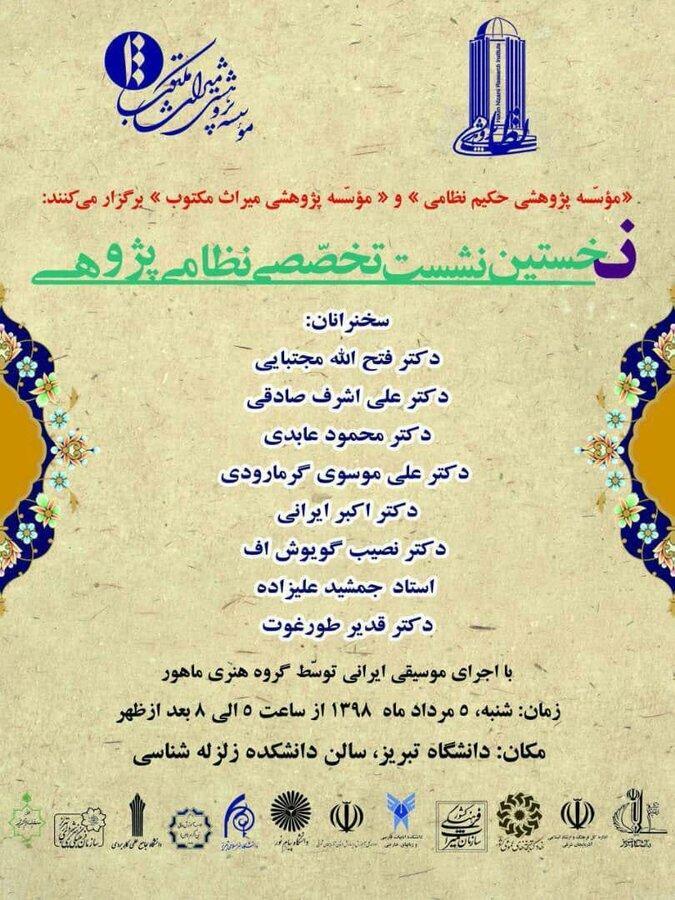 مؤسسه پژوهشی میراث مکتوب
Hakim Nizami Research Institute
«مؤسّسه پژوهشی حکیم نظامی» و «مؤسّسه پژوهشی میراث مکتوب» برگزار می‌کنند:
نخستین نشست تخصّصی نظامی پژوهی
سخنرانان:
دکتر فتح الله مجتبایی
دکتر علی اشرف صادقی
دکتر محمود عابدی
دکتر علی موسوی گرمارودی
دکتر اکبر ایرانی
دکتر نصیب گویوش اف
استاد جمشید علیزاده
دکتر قدیر طورغوت
با اجرای موسیقی ایرانی توسّط گروه هنری ماهور
زمان: شنبه، ٥ مرداد ماه ١٣٩٨ از ساعت ٥ الی ٨ بعد ازظهر
مکان: دانشگاه تبریز، سالن دانشکده زلزله شناسی
اداره کل فرهنگ و ارشاد اسلامی
آذربایجان شرقی
دانشگاه پیام نور
دانشگاه جامع علمی کاربردی